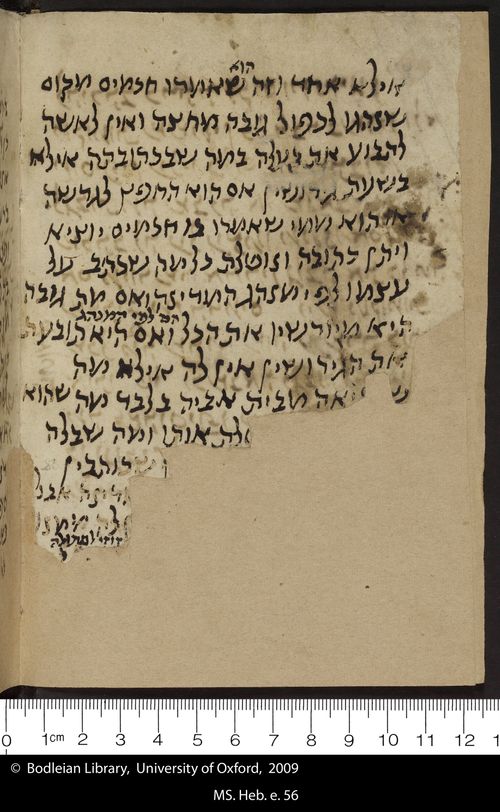 הוא
אילא אחד וזה שאמרו חכמים מקום
שנהגו לכפול גובה מחצה ואין לאשה
לתבוע את בעלה במה שבכתובתה אילא
בשעת גירושין אם הוא החפץ לגרשה
או הוא ממי שאמרו בו חכמים יוציא
ויתן כתובה ונוטלת כל מה שכתב על
עצמו לפי מנהג המדינה ואם מת גובה
הכל לפי המנהג
היא מיורשיו את הכל ואם היא תובעת
את הגירושין אין לה אילא מה
מבית אביה בלבד מה שהוא
אותו ומה שבלה
כותבין
אבל
0 1cm 2 3 4 5 6 7 8 9 10 11 12 1
© Bodleian Library, University of Oxford, 2009
MS. Heb. e. 56